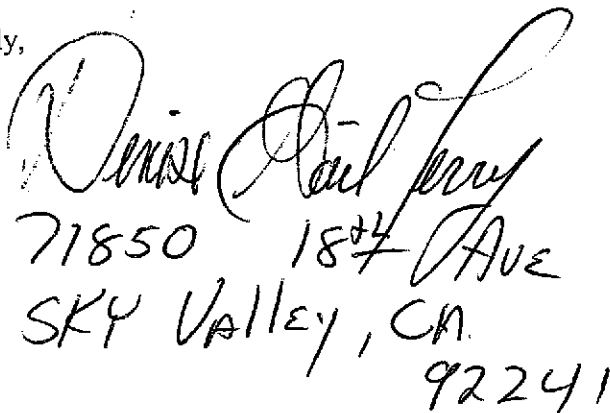 ly,
Denise Gail Terry
71850 18th Ave
SKY VAllEy, CA.
92241